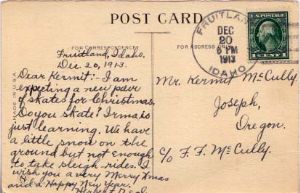 POST CARD
FOR CORRESPONDENCE
FOR ADDRESS
FRUITLA
DEC
20
6 PM
1913
IDAHO
Fruitland, Idaho,
Dec. 20, 1913.
Dear Kermit:- I am
expecting a new pair
of skates for Christmas.
Do you skate? Irma is
just learning. We have
a little snow on the
ground but not enough
to take sleigh rides. I
wish you a very Merry Xmas
and a Happy New Year.
Mr. Kermit McCully
Joseph,
Oregon.
c/o F. F. McCully.